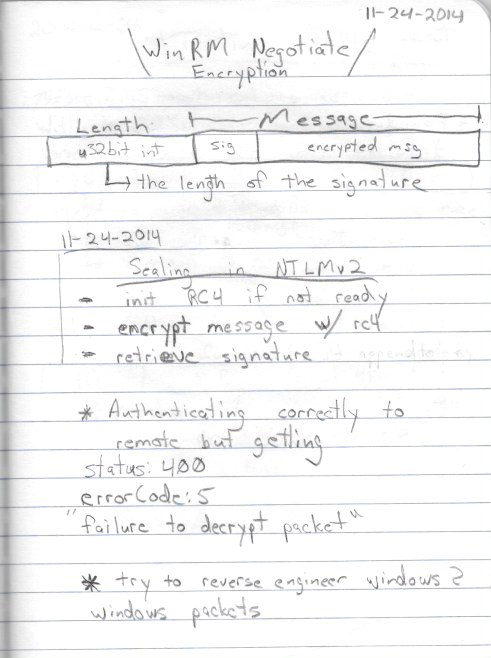 11-24-2014
WinRM Negotiate
Encryption
Length Message
u32bit int sig encrypted msg
the length of the signature
11-24-2014
Sealing in NTLMv2
- init RC4 if not ready
- encrypt message w/ rc4
- retrieve signature
* Authenticating correctly to
remote but getting
status: 400
errorCode: 5
"failure to decrypt packet"
* try to reverse engineer windows 2
windows packets